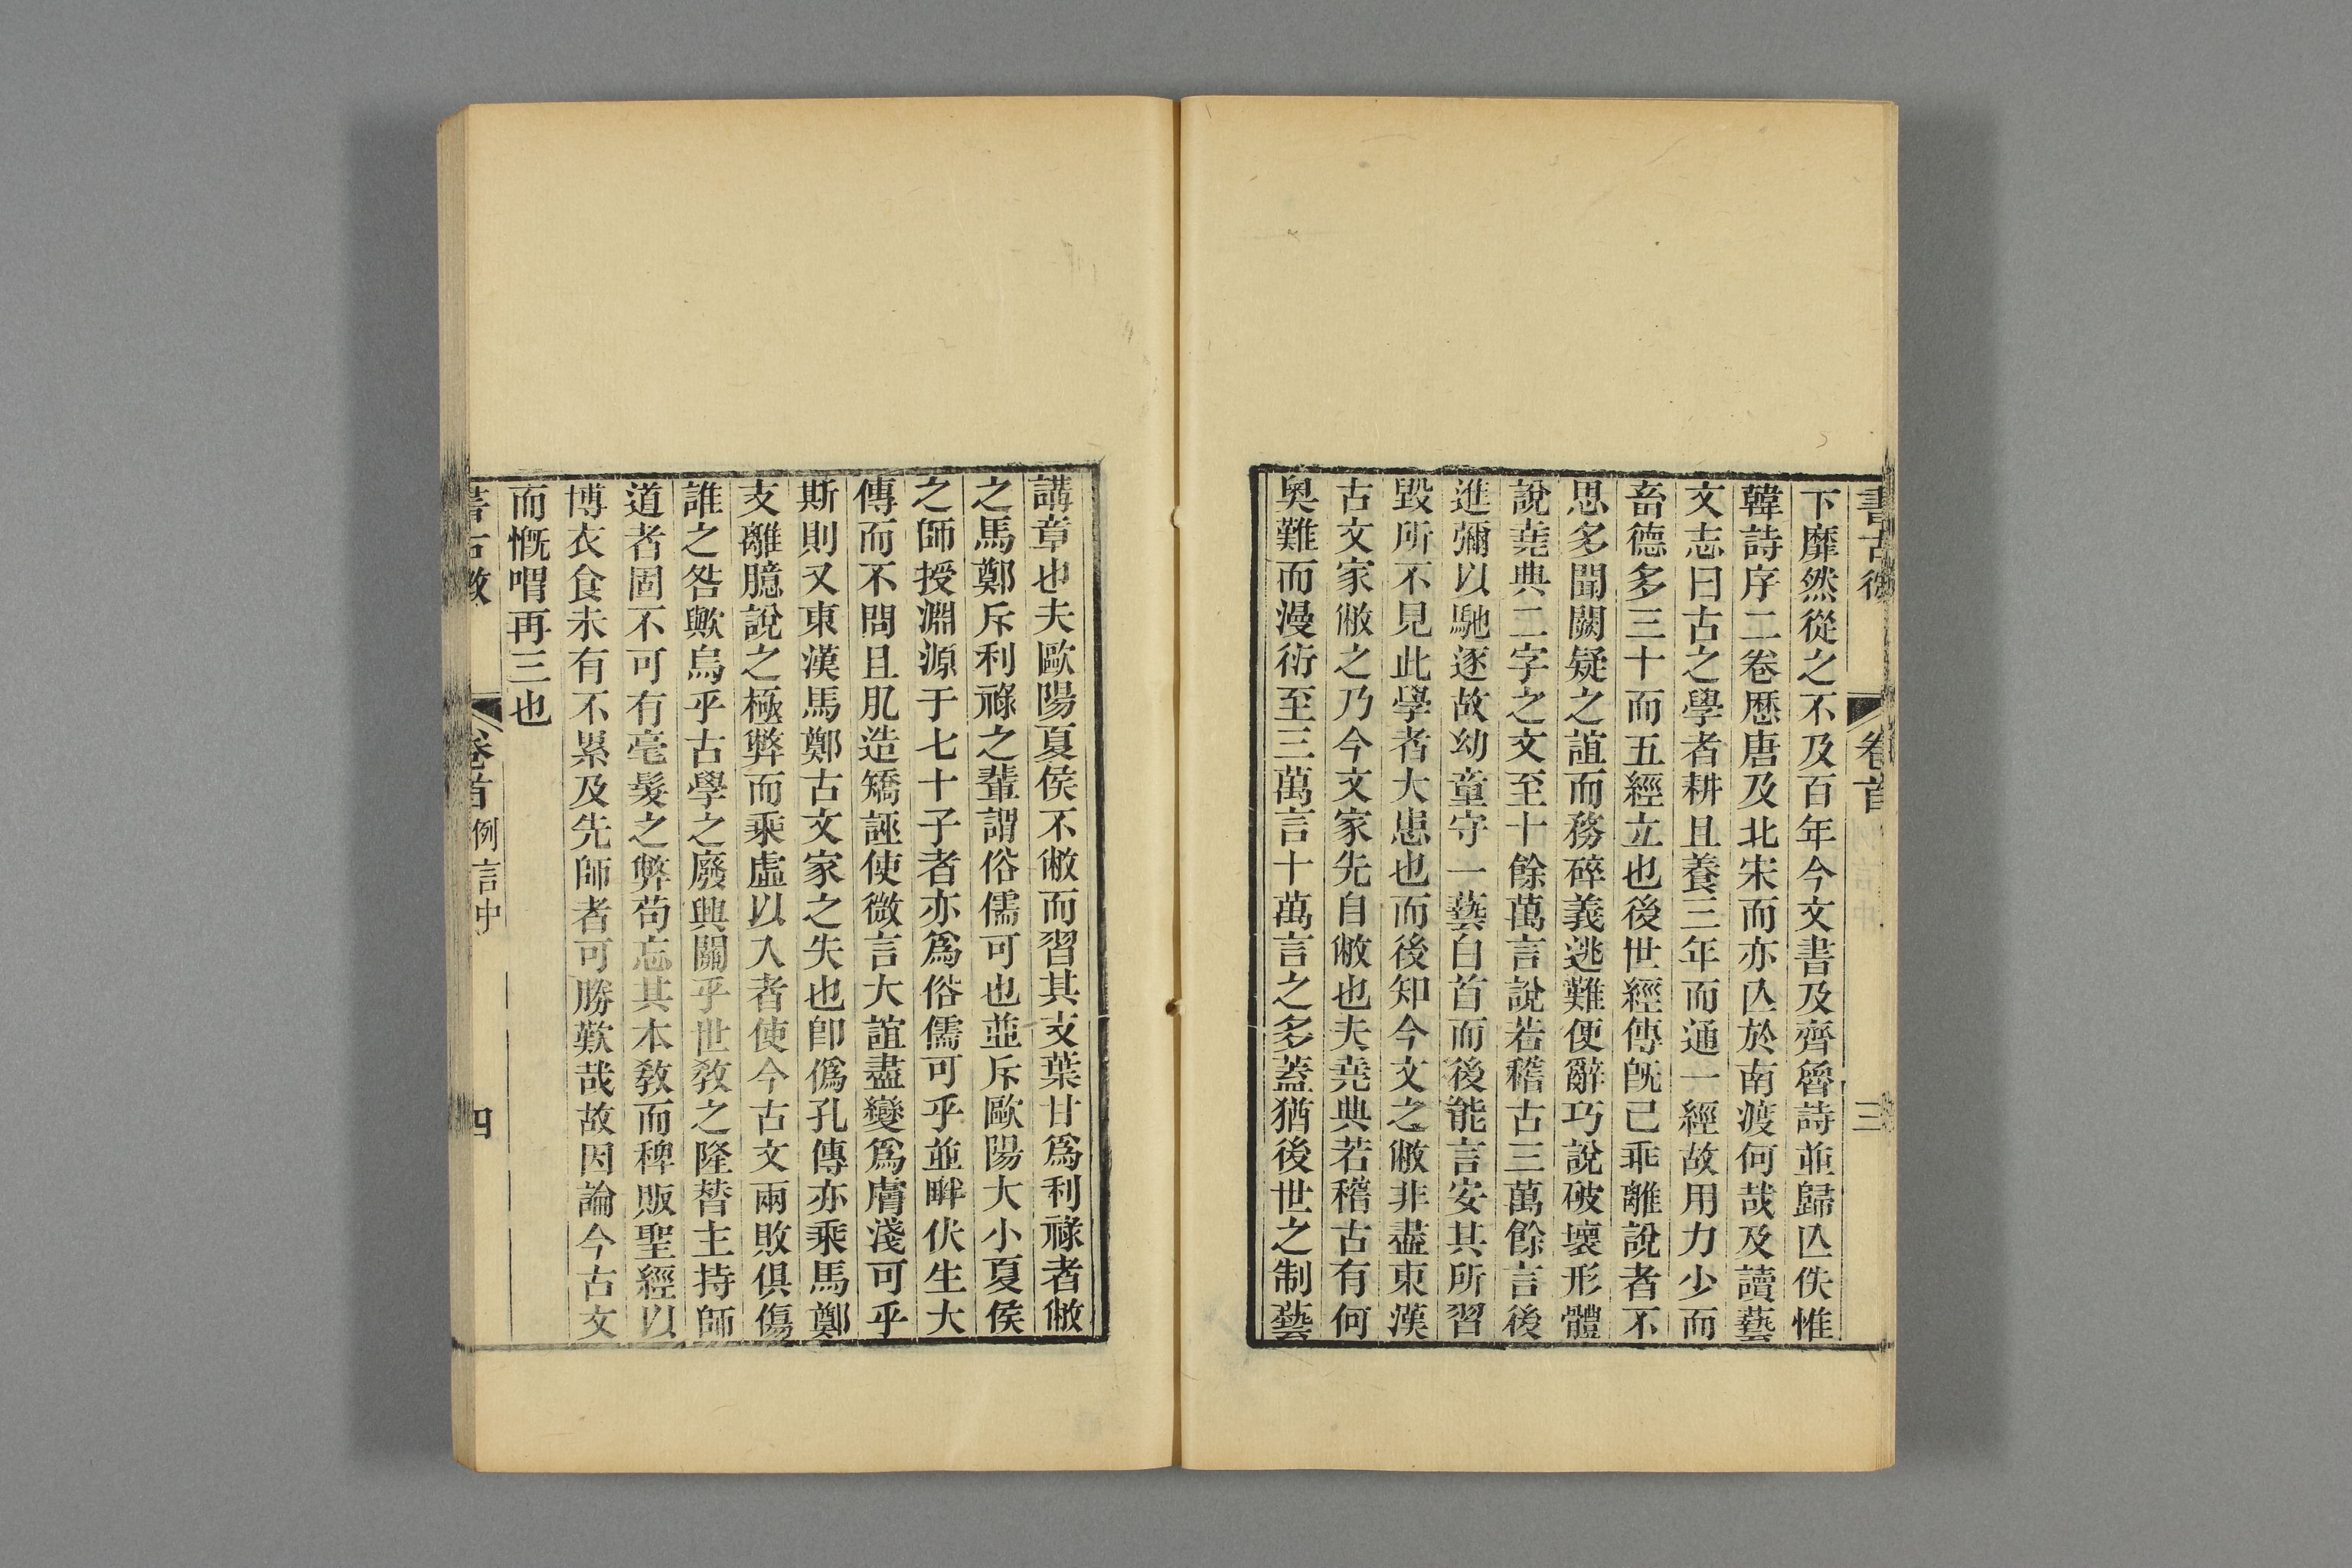 書古微
卷首
三
下靡然從之不及百年今文書及齊魯詩並歸亾佚惟
韓詩序二卷歷唐及北宋而亦亾於南渡何哉及讀藝
文志曰古之學者耕且養三年而通一經故用力少而
畜德多三十而五經立也後世經傳旣已乖離說者不
思多聞闕疑之誼而務碎義逃難便辭巧說破壞形體
說堯典二字之文至十餘萬言說若稽古三萬餘言後
進彌以馳逐故幼童守一藝白首而後能言安其所習
毀所不見此學者大患也而後知今文之敝非盡東漢
古文家敝之乃今文家先自敝也夫堯典若稽古有何
奧難而漫衍至三萬言十萬言之多蓋猶後世之制藝
講章也夫歐陽夏侯不敝而習其支葉甘爲利祿者敝
之馬鄭斥利祿之輩謂俗儒可也並斥歐陽大小夏侯
之師授淵源于七十子者亦爲俗儒可乎並畔伏生大
傳而不問且肊造矯誣使微言大誼盡變爲膚淺可乎
斯則又東漢馬鄭古文家之失也卽僞孔傳亦乘馬鄭
支離臆說之極弊而乘虛以入者使今古文兩敗俱傷
誰之咎歟烏乎古學之廢興關乎世敎之隆替主持師
道者固不可有毫髮之弊苟忘其本敎而稗販聖經以
博衣食未有不累及先師者可勝歎哉故因論今古文
而慨喟再三也
書古微
卷首
例言中
四